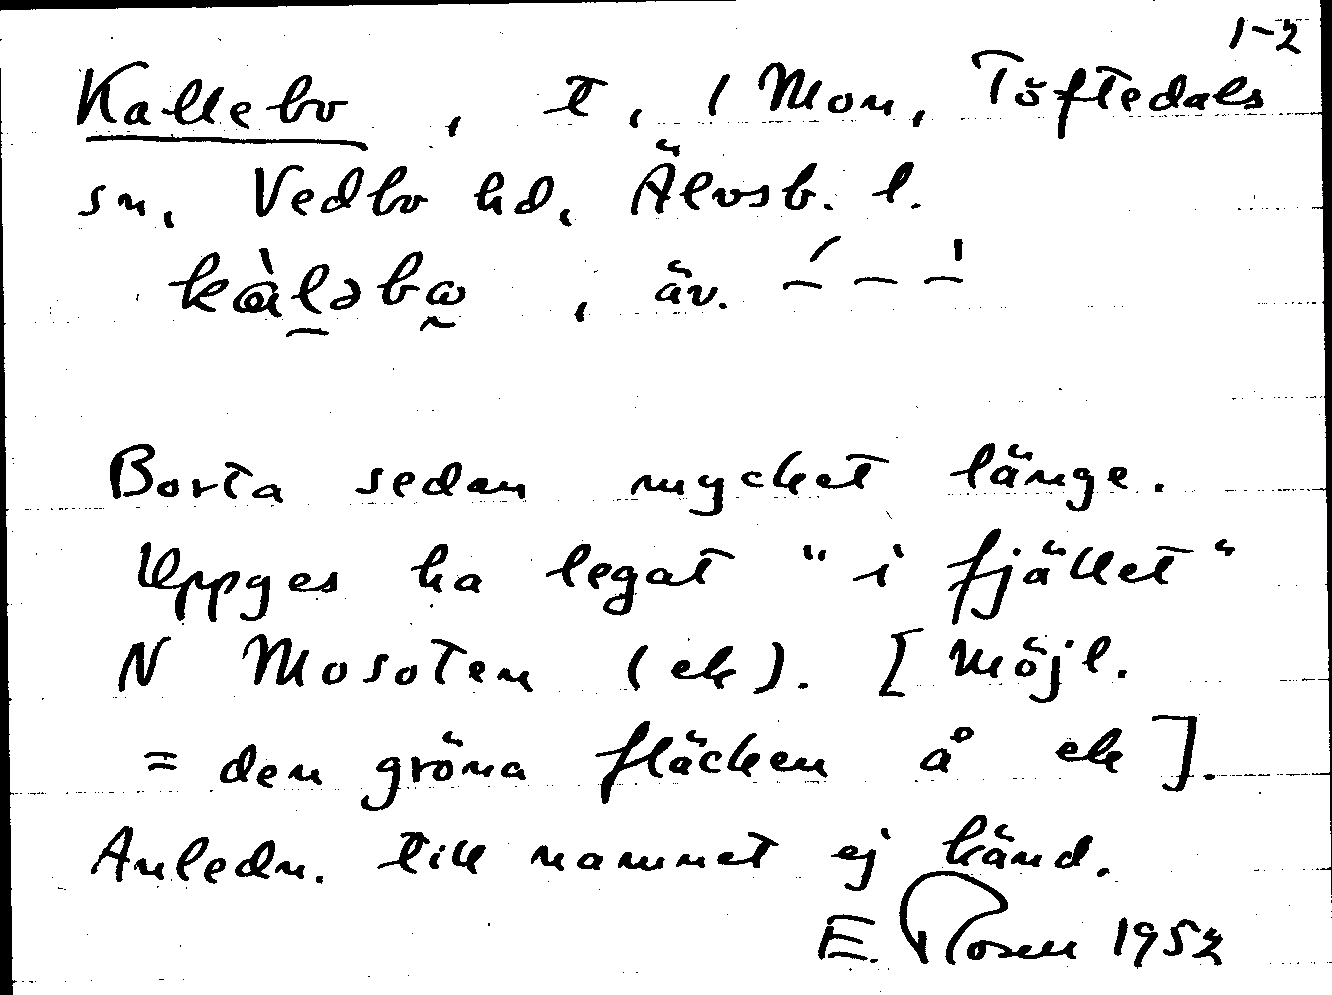 1-2
Kallebo, t, 1 Mon, Töftedals
sn, Vedbo hd, Älvsb. l.
kàləbɷ, äv. –́ – –̍
Borta sedan mycket länge.
Uppges ha legat "i fjället"
N Mosoten (ek). [Möjl.
= den gröna fläcken å ek].
Anledn. till namnet ej känd.
E. Rosell 1952